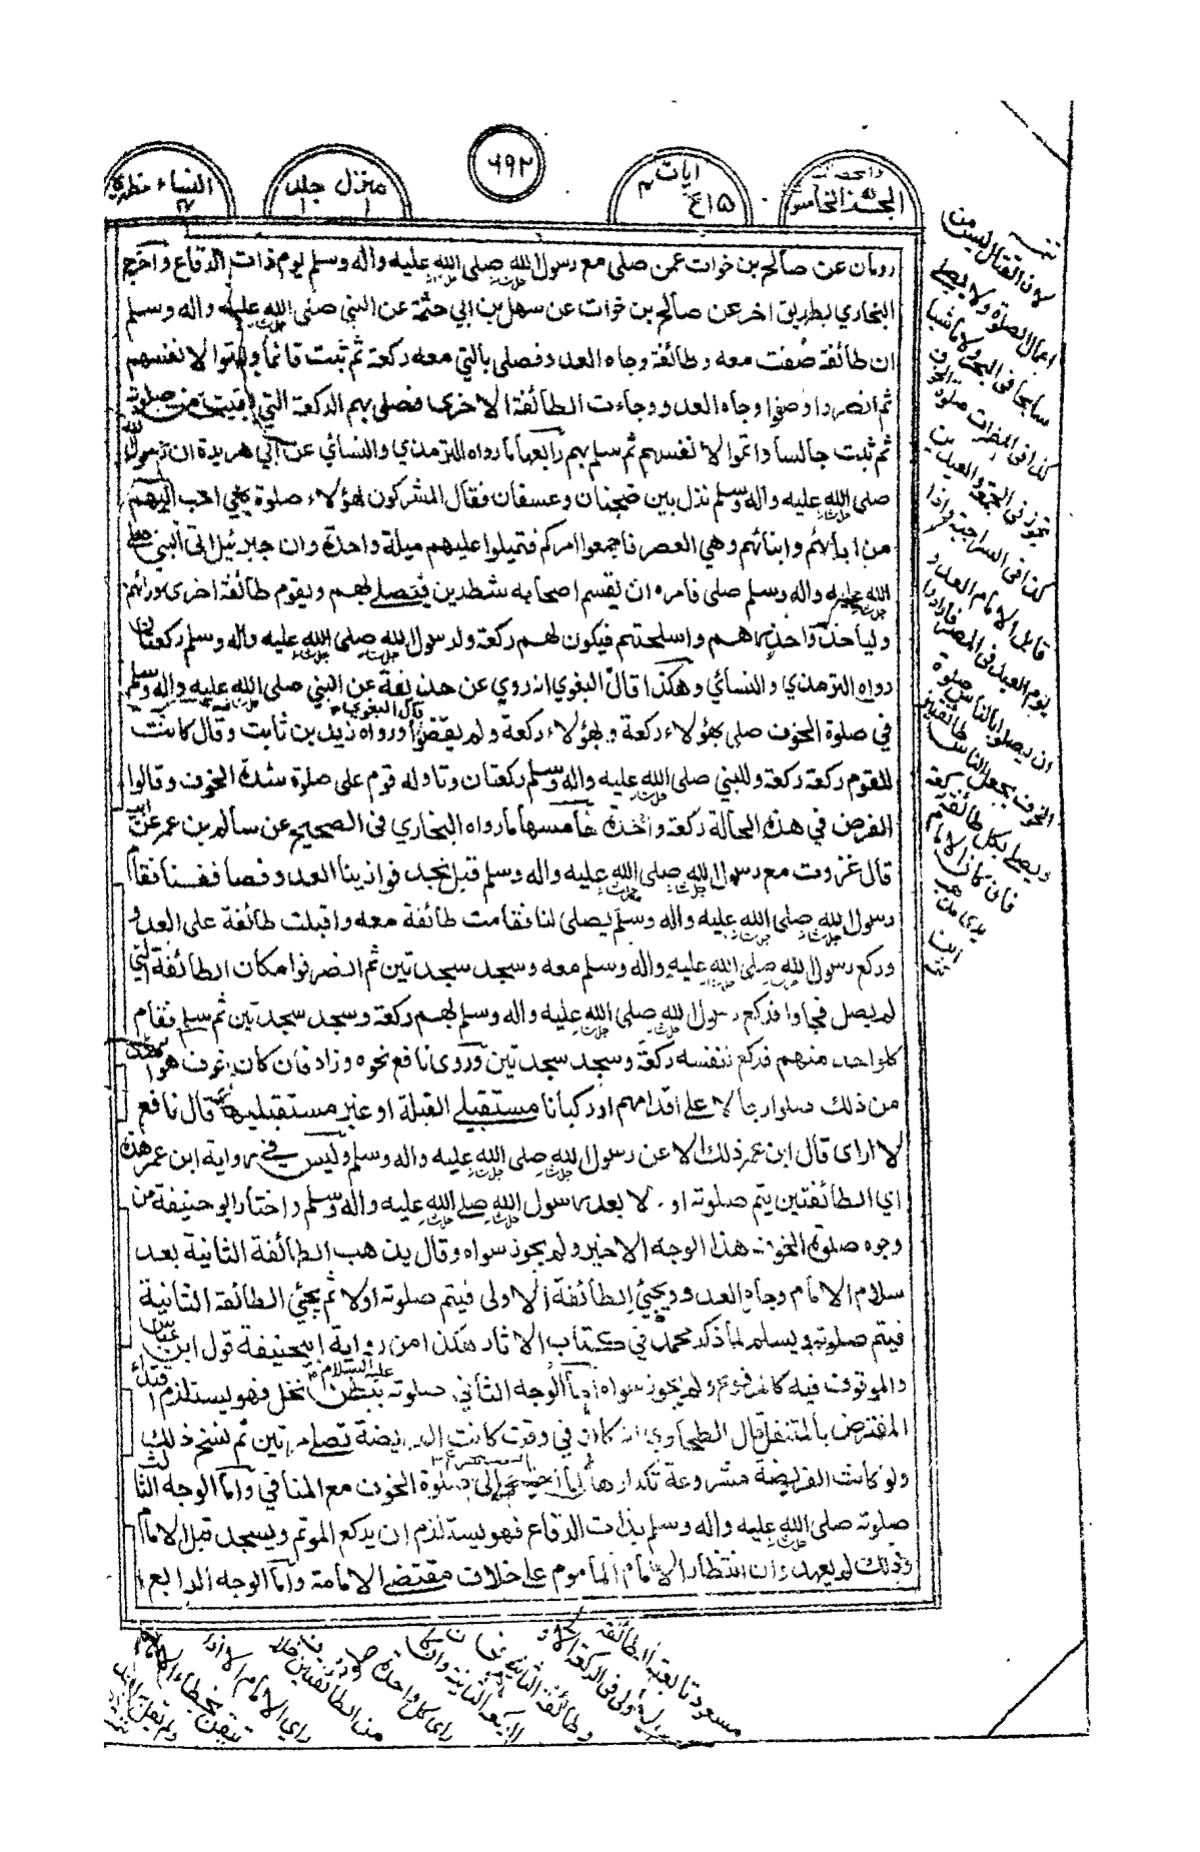 النساء مظهري
منزل جلد
٦٩٢
ايات
١٥ع
رومان عن صالح بن خوات عمن صلى مع رسول الله صلى الله عليه واله وسلم يوم ذات الرقاع واخرج
البخاري بطريق اخر عن صالح بن خوات عن سهل بن ابي حثمة عن النبي صلى الله عليه واله وسلم
ان طائفة صفت معه وطائفة وجاه العدو فصلى بالتي معه ركعة ثم ثبت قائما واتموا لانفسهم
ثم انصرفوا وصفوا وجاه العدو وجاءت الطائفة الاخرى فصلى بهم الركعة التي بقيت من صلوته
ثم ثبت جالسا واتموا لانفسهم ثم سلم بهم رابعها ما رواه الترمذي والنسائي عن ابي هريرة ان رسول الله
صلى الله عليه واله وسلم نزل بين ضجنان وعسفان فقال المشركون لهؤلاء صلوة هي احب اليهم
من ابائهم وابنائهم وهي العصر فاجمعوا امركم فتميلوا عليهم ميلة واحدة وان جبرئيل اتى النبي صلى
الله عليه واله وسلم فامره ان يقسم اصحابه شطرين فيصلي بهم ويقوم طائفة اخرى ورائهم
ولياخذوا حذرهم واسلحتهم فيكون لهم ركعة ولرسول الله صلى الله عليه واله وسلم ركعتان
رواه الترمذي والنسائي وهكذا قال البغوي انه روي عن حذيفة عن النبي صلى الله عليه واله وسلم
في صلوة الخوف صلى بهؤلاء ركعة وبهؤلاء ركعة ولم يقضوا ورواه زيد بن ثابت وقال كانت
للقوم ركعة ركعة وللنبي صلى الله عليه واله وسلم ركعتان وتاوله قوم على صلوة شدة الخوف وقالوا
الفرض في هذه الحالة ركعة واحدة خامسها ما رواه البخاري في الصحيح عن سالم بن عمر عن ابيه
قال غزوت مع رسول الله صلى الله عليه واله وسلم قبل نجد فوازينا العدو فصاففنا فقام
رسول الله صلى الله عليه واله وسلم يصلى لنا فقامت طائفة معه واقبلت طائفة على العدو
وركع رسول الله صلى الله عليه واله وسلم معه وسجد سجدتين ثم انصرفوا مكان الطائفة التي
لم يصل فجاوا فركع رسول الله صلى الله عليه واله وسلم بهم ركعة وسجد سجدتين ثم سلم فقام
كل واحد منهم فركع لنفسه ركعة وسجد سجدتين وروى نافع نحوه وزاد فان كان خوف هو اشد
من ذلك صلوا رجالا على اقدامهم او ركبانا مستقبلي القبلة او غير مستقبليها قال نافع
لا ارى قال ابن عمر ذلك الا عن رسول الله صلى الله عليه واله وسلم وليس في رواية ابن عمر هذه
اي الطائفتين يتم صلوته اولا بعد رسول الله صلى الله عليه واله وسلم واختار ابو حنيفة من
وجوه صلوة الخوف هذا الوجه الاخير ولم يجوز سواه وقال يذهب الطائفة الثانية بعد
سلام الامام وجاه العدو ويجيئ الطائفة الاولى فيتم صلوته اولا ثم يجئي الطائفة الثانية
فيتم صلوته ويسلم لما ذكر محمد في كتاب الاثار هكذا من رواية ابي حنيفة قول ابن عباس
والموقوف فيه كالمرفوع ولم يجوز سواه اما الوجه الثاني صلوته عليه السلام ببطن نخل فهو يستلزم اقتداء
المفترض بالمتنفل قال الطحاوي انه كان في وقت كانت الفريضة تصلى مرتين ثم نسخ ذلك
ولو كانت الفريضة مشروعة تكرارها لما احتيج الى صلوة الخوف مع المنافي واما الوجه الثالث
صلوته صلى الله عليه واله وسلم بذات الرقاع فهو يستلزم ان يركع الموتم ويسجد قبل الامام
وذلك لم يعهد وان انتظار الامام الماموم على خلاف مقتضى الامامة واما الوجه الرابع
لان القتال ليس من
اعمال الصلوة ولا يصلي
سابحا في البحر ولا ماشيا
كذا في المضمرات صلوة الخوف
تجوز في الجمعة والعيدين
كذا في السراجية واذا
قابل الامام العدو
يوم العيد في المصر فارادوا
ان يصلوا بالناس صلوة
الخوف يجعل الناس طائفتين
ويصلي بكل طائفة ركعة
فان كان الامام
يرى مذهب
ابن
مسعود تابعه الطائفة
الاولى في الركعة
وطائفة الثانية
الركعة الثانية وان كان
راى كل واحدة
من الطائفتين خلاف
راي الامام الا اذا
تيقن بخطاء الامام